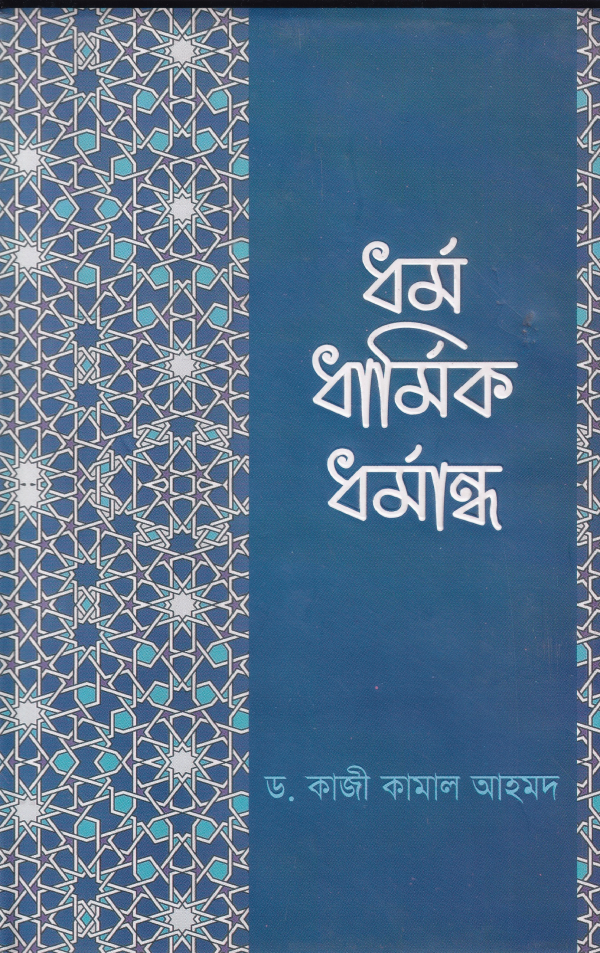 ধর্ম
ধার্মিক
ধর্মান্ধ
ড. কাজী কামাল আহমদ